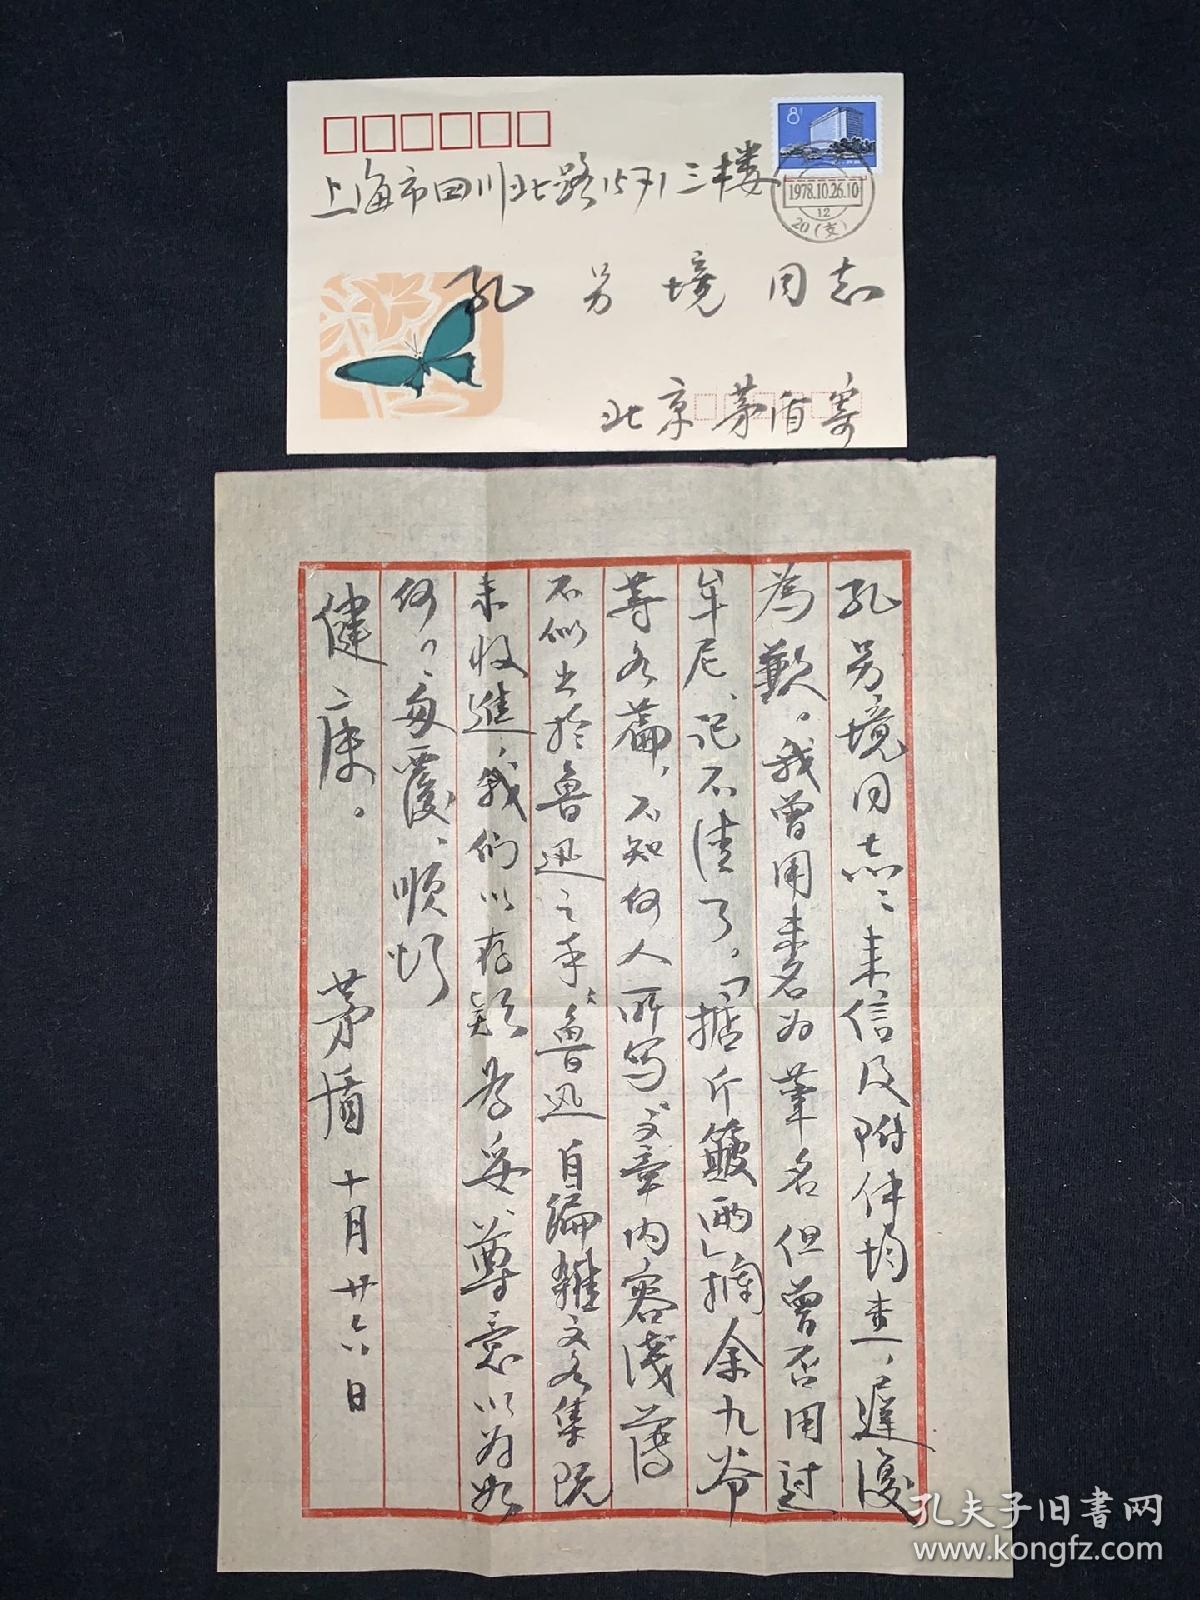 8分
1978.10.26.10
12
20(支)
上海市四川北路1571三楼
孔另境同志
北京茅盾寄
孔另境同志：来信及附件均悉，遲復
為歉。我曾用来名为筆名但曾否用过
牟尼，记不清了。「掂斤簸两」摘余九爷
等各篇，不知何人所写，文章内容浅薄
不似出於魯迅之手，魯迅自编雜文各集既
未收進，我们以存疑为妥，尊意以为如
何？匆覆，順頌
健康。
茅盾 十月廿六日
孔夫子旧书网
www.kongfz.com